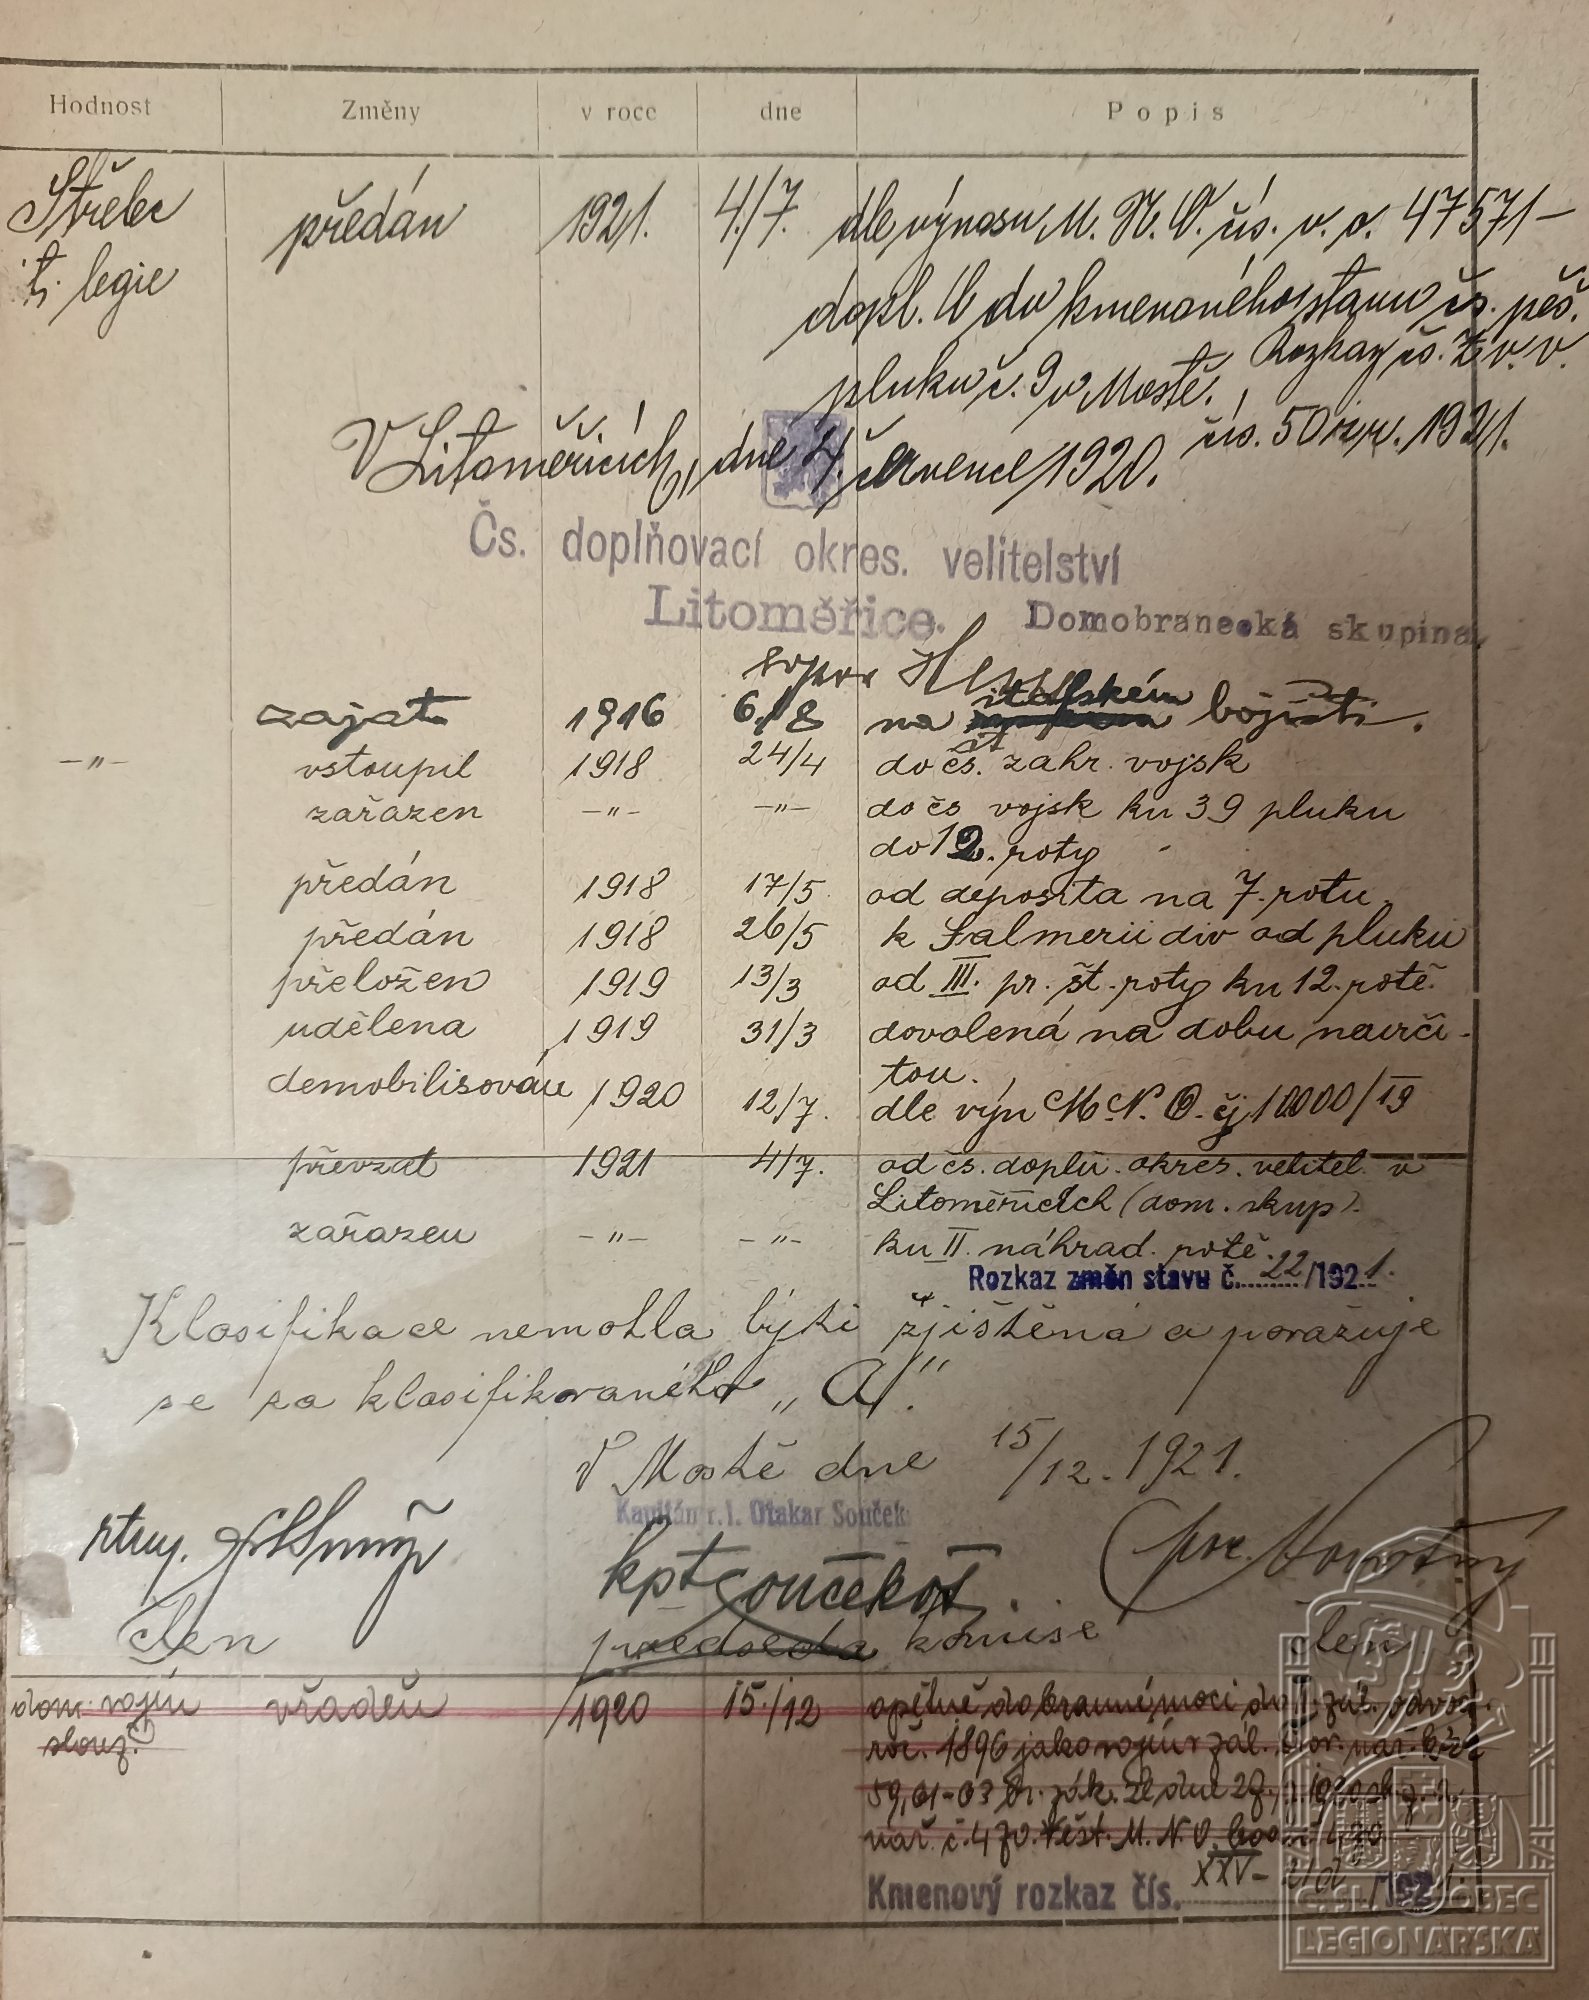 Hodnost Změny v roce dne Popis
Střelec předán 1921. 4./7. dle výnosu M. N. O. čís. v. o. 47571-
it. legie dopl. do kmenového stavu čs. pěš.
pluku č. 9 v Mostě. Rozkaz čs. v. v.
čís. 50 1921.
V Litoměřicích, dne 4. července 1920.
Čs. doplňovací okres. velitelství
Litoměřice. Domobranecká skupina.
zajat 1916 6./8 na italském bojišti.
-"- vstoupil 1918 24/4 do čs. zahr. vojsk
zařazen -"- -"- do čs vojsk ku 39 pluku
do 12. roty
předán 1918 17/5 od deposita na 7. rotu
předán 1918 26/5 k Salmerii div od pluku
přeložen 1919 13/3 od III. pr. št. roty ku 12. rotě.
udělena 1919 31/3 dovolená na dobu neurči-
tou.
demobilisován 1920 12/7. dle výn M. N. O. čj 10000/19
převzat 1921 4/7. od čs. doplň. okres. velitel. v
Litoměřicích (dom. skup).
zařazen -"- -"- ku II. náhrad. rotě.
Rozkaz změn stavu č. 22/1921.
Klasifikace nemohla býti zjištěna a považuje
se za klasifikovaného „A“.
V Mostě dne 15/12. 1921.
Kapitán r. l. Otakar Souček
kpt Souček Ot. por. Novotný
člen předseda komise člen
dom. vojín vřaděn 1920 15./12 opětně do branné moci
slouž. roč. 1896 jako vojín v zál.
59, 61-63 br. zák. ze dne
nař. č. 470. Věst. M. N. O.
Kmenový rozkaz čís. XXV- /192
ČSL. OBEC
LEGIONÁŘSKÁ